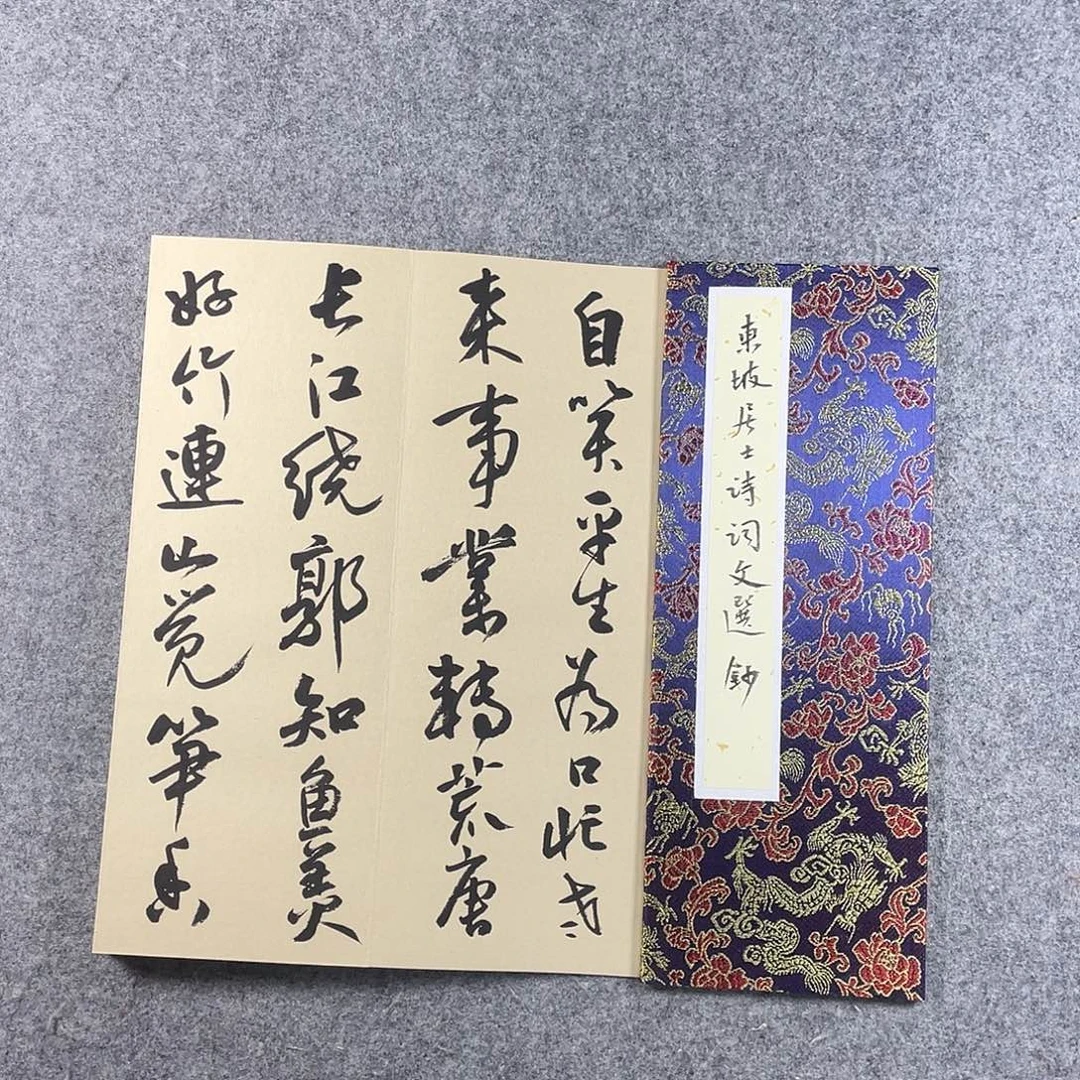 東坡居士诗词文選鈔
自笑平生為口忙老
来事業轉荒唐
长江绕郭知魚美
好竹連山觉笋香